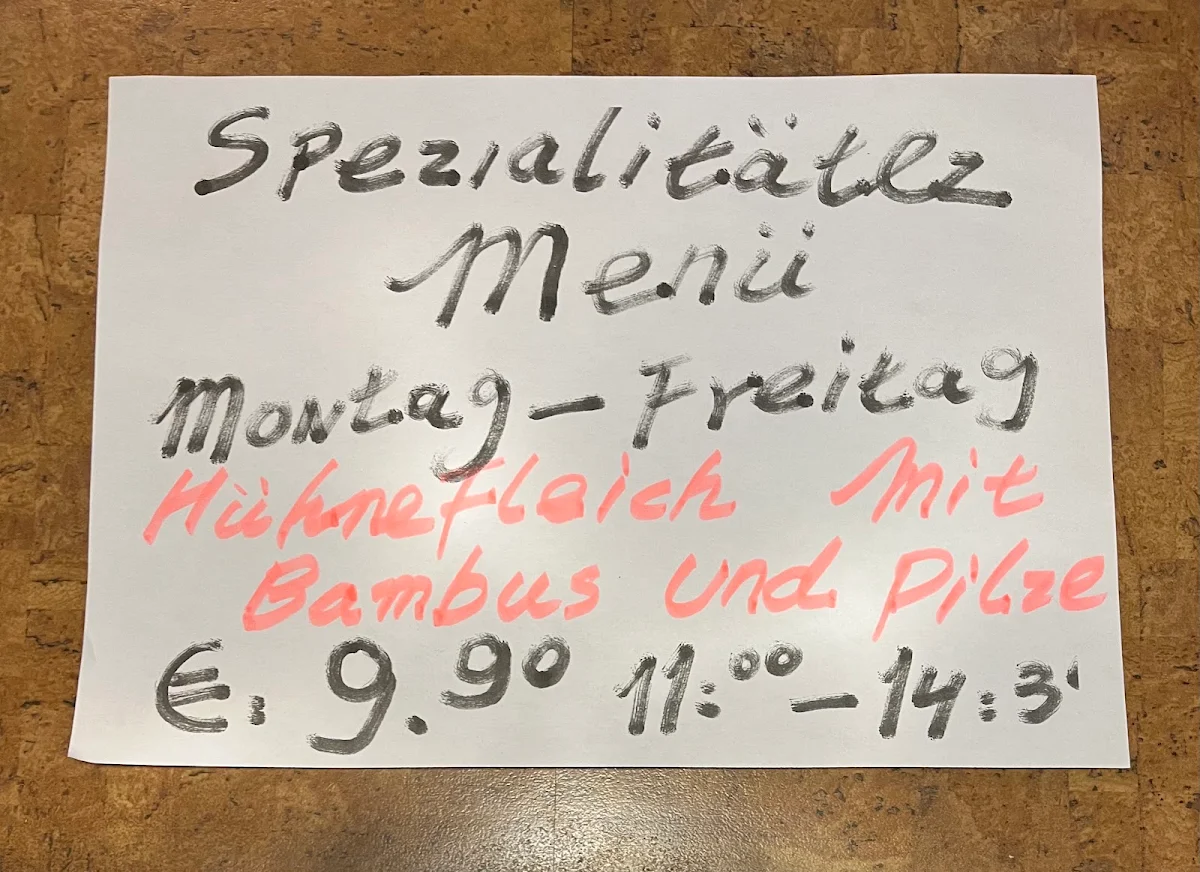 Spezialitätez
Menü
Montag – Freitag
Hühnefleich Mit
Bambus und Pilze
€: 9.90 11:00 – 14:3'